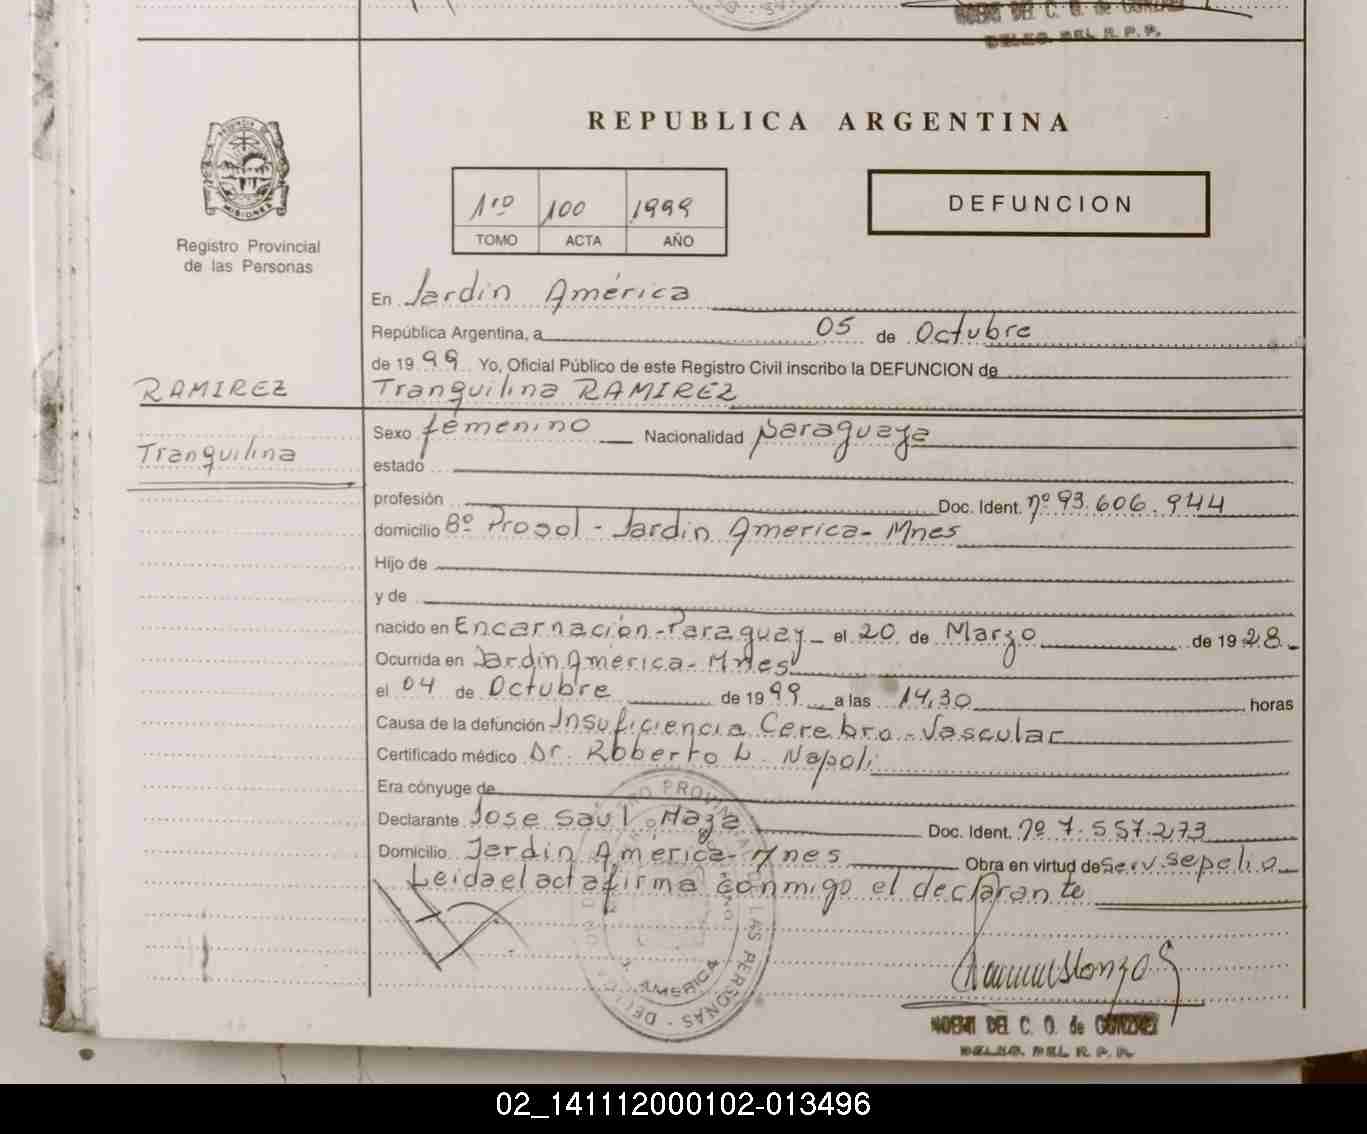 DELEG. DEL R. P. P.
REPUBLICA ARGENTINA
PROVINCIA DE
MISIONES
Registro Provincial
de las Personas
1ro 100 1999
TOMO ACTA AÑO
DEFUNCION
En Jardín América
República Argentina, a 05 de Octubre
de 1999 Yo, Oficial Público de este Registro Civil inscribo la DEFUNCION de
RAMIREZ
Tranquilina RAMIREZ
Tranquilina
Sexo femenino Nacionalidad paraguaya
estado
profesión Doc. Ident. nº 93.606.944
domicilio Bº Prosol - Jardín América - Mnes
Hijo de
y de
nacido en Encarnación - Paraguay - el 20 de Marzo de 1928.
Ocurrida en Jardín América - Mnes
el 04 de Octubre de 1999 a las 14,30 horas
Causa de la defunción Insuficiencia Cerebro - Vascular
Certificado médico Dr. Roberto L. Napoli
Era cónyuge de
Declarante Jose Saul Maza Doc. Ident. nº 7.557.273
Domicilio Jardín América - Mnes Obra en virtud de Serv. sepelio
Leida el acta firma conmigo el declarante
PROVINCIAL
LAS PERSONAS
AMERICA
NOEMI DEL C. O. de GONZALEZ
DELEG. DEL R. P. P.
02_141112000102-013496